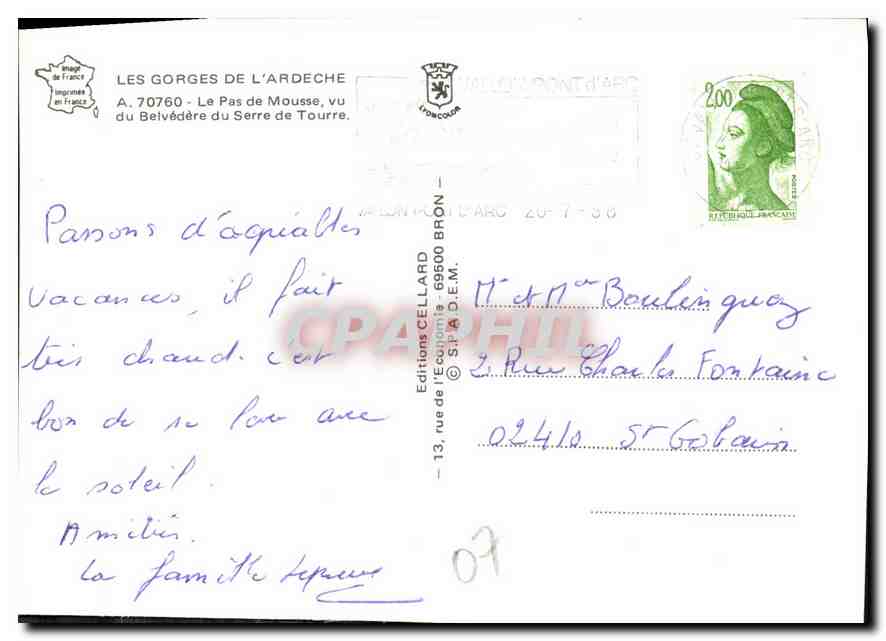 Image
de France
Imprimée
en France
LES GORGES DE L'ARDECHE
A. 70760 - Le Pas de Mousse, vu
du Belvédère du Serre de Tourre.
LYONCOLOR
PONT d'ARC
VALLON PONT D'ARC 20-7-
2,00
POSTES
REPUBLIQUE FRANÇAISE
Passons d'agréables
vacances, il fait
très chaud. c'est
bon de se lever avec
le soleil.
Amitiés.
La famille
Editions CELLARD
- 13, rue de l'Economie - 69500 BRON -
© S.P.A.D.E.M.
CPAPHIL
Mr et Mme Boulinguez
2 Rue Charles Fontaine
02410 St Gobain
07